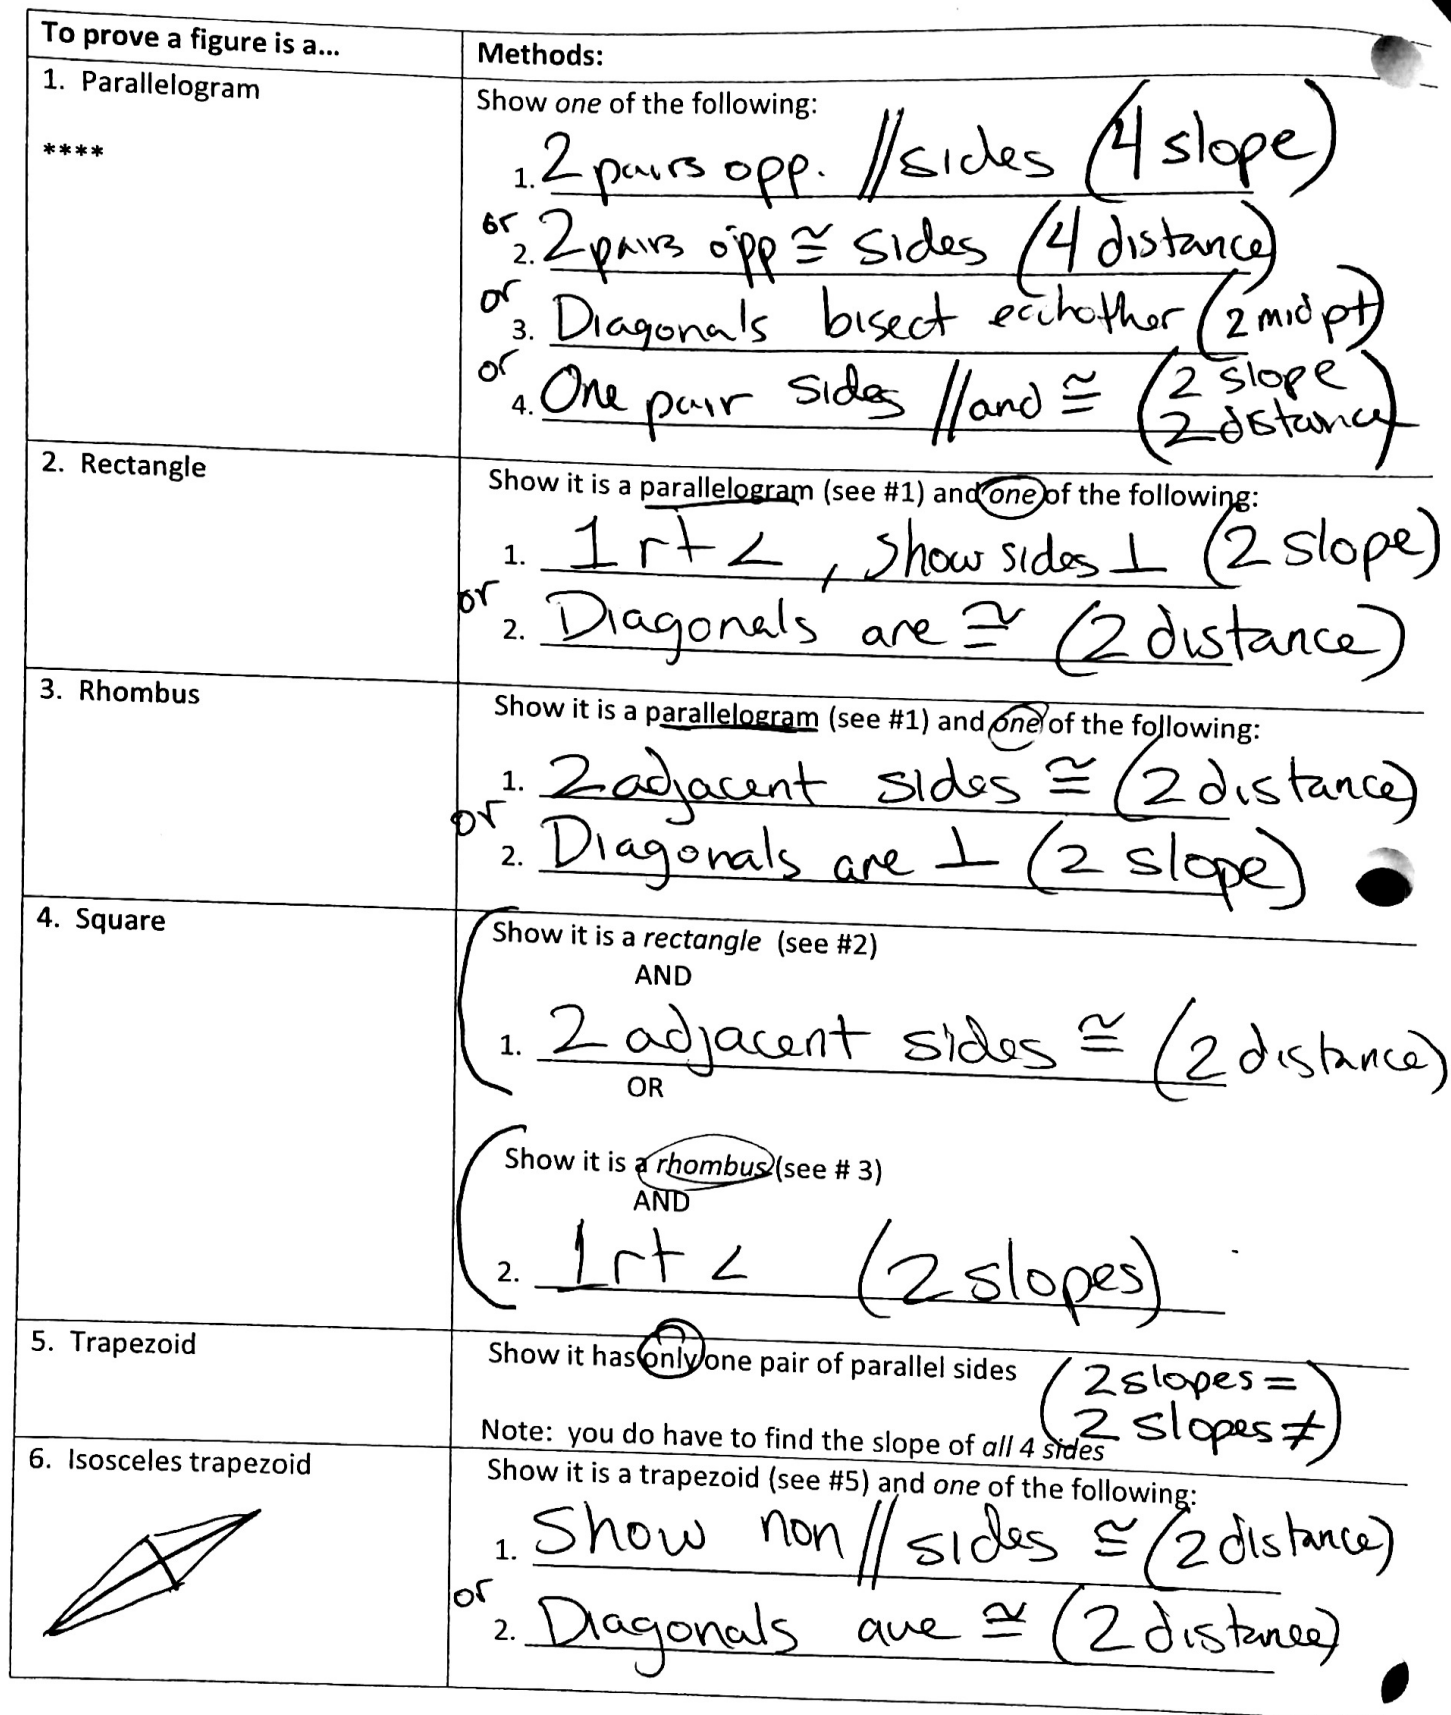 To prove a figure is a...
Methods:
1. Parallelogram
****
Show one of the following:
1. 2 pairs opp. // sides (4 slope)
or 2. 2 pairs opp ≅ sides (4 distance)
or 3. Diagonals bisect eachother (2 midpt)
or 4. One pair sides // and ≅ (2 slope
2 distance)
2. Rectangle
Show it is a parallelogram (see #1) and one of the following:
1. 1 rt <, show sides ⊥ (2 slope)
or 2. Diagonals are ≅ (2 distance)
3. Rhombus
Show it is a parallelogram (see #1) and one of the following:
1. 2 adjacent sides ≅ (2 distance)
or 2. Diagonals are ⊥ (2 slope)
4. Square
Show it is a rectangle (see #2)
AND
1. 2 adjacent sides ≅ (2 distance)
OR
Show it is a rhombus (see # 3)
AND
2. 1 rt < (2 slopes)
5. Trapezoid
Show it has only one pair of parallel sides (2 slopes =
2 slopes ≠)
Note: you do have to find the slope of all 4 sides
6. Isosceles trapezoid
Show it is a trapezoid (see #5) and one of the following:
1. Show non // sides ≅ (2 distance)
or 2. Diagonals are ≅ (2 distance)